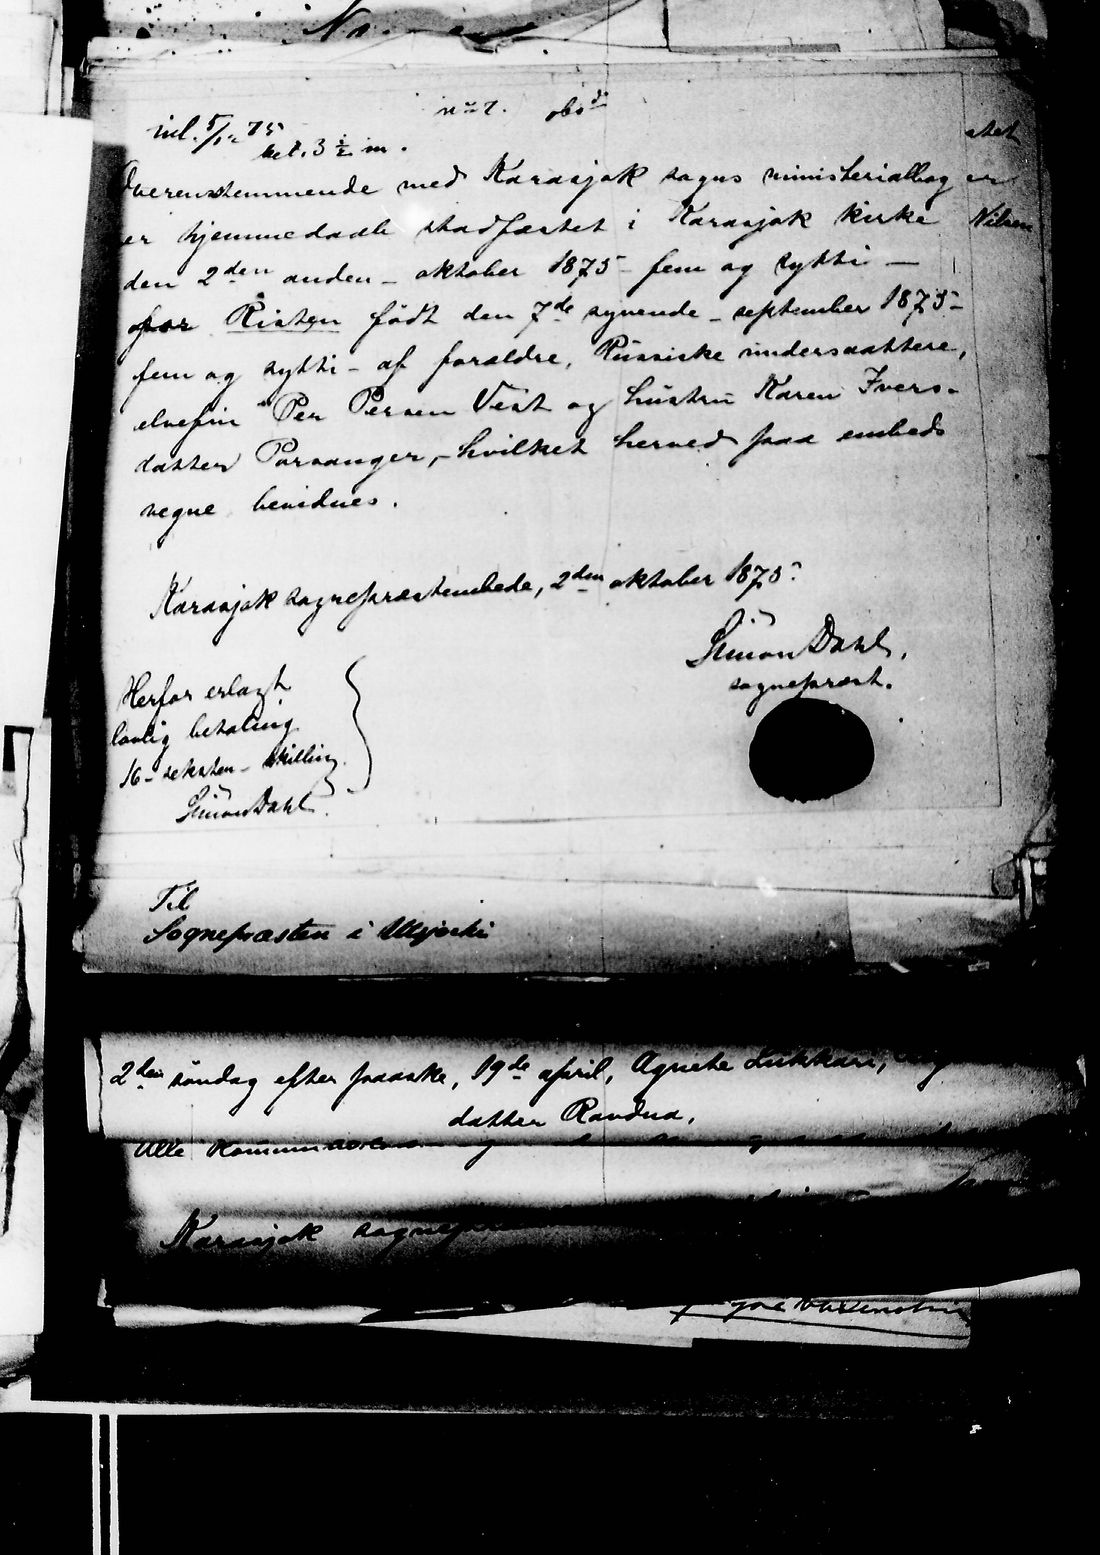 No 7. obsd
inl. 5/12 75
bet. 3 1/2 m.
Overensstemmende med Karasjok sogns ministerialbog er
er hjemmedaab stadfæstet i Karasjok kirke
den 2den anden – oktober 1875 – fem og sytti –
for Risten født den 7de syvende – september 1875 –
fem og sytti – af forældre, Russiske undersaattere,
elvefin Per Persen Vest og hustru Karen Ivers-
datter Porsanger, – hvilket herved paa embeds
vegne bevidnes.
Karasjok sognepræstembede, 2den oktober 1875.
Simon Dahl,
sogneprest.
Herfor erlagt
lovlig betaling
16 – seksten – skilling.
Simon Dahl.
Til
Sognepræsten i Utsjoki
stet
Nilsen
2den søndag efter paaske, 19de april, Agnete Lukkari,
datter Ravdna.
Alle
Karasjok